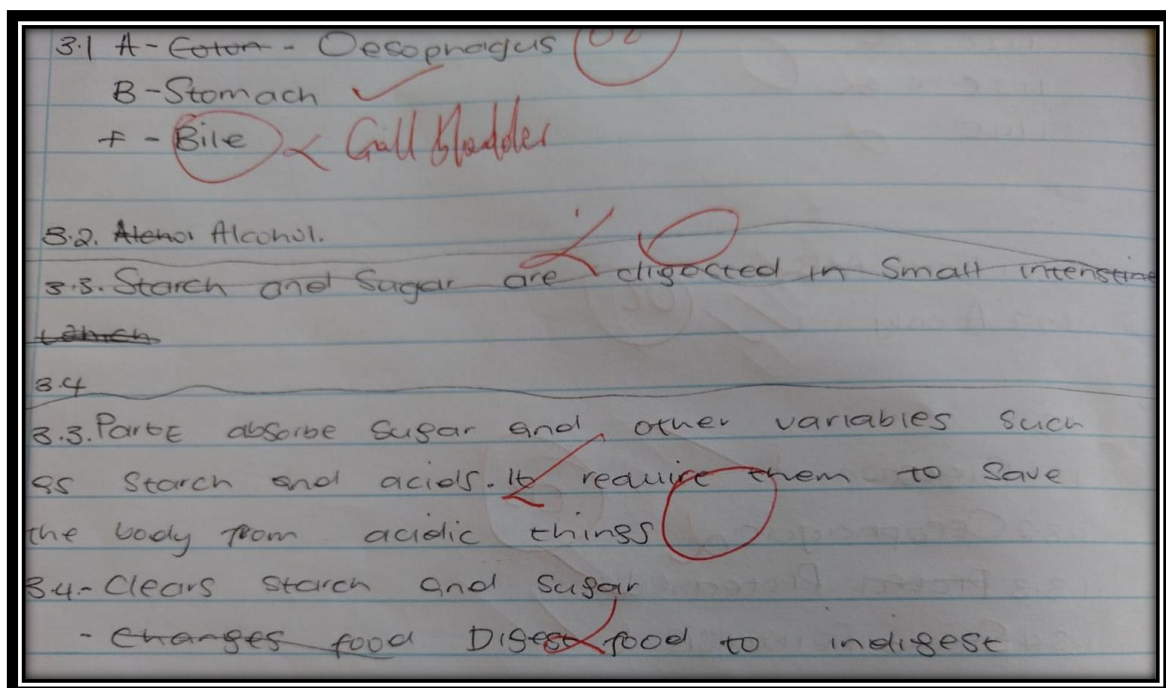 3.1 A - Colon - Oesophagus 02
B - Stomach
F - Bile Gall Bladder
3.2. Alcohol.
3.3. Starch and Sugar are digested in Small intenstine
which
3.4
3.3. Part E absorbe Sugar and other variables such
as Starch and acids. It require them to Save
the body from acidic things
3.4 - Clears Starch and Sugar
- Changes food Digest food to indigest